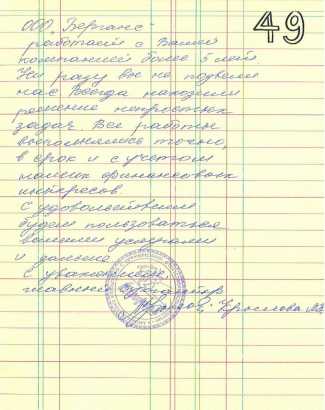 49
ООО "Берганс"
работаем с Вашей
компанией более 5 лет.
Ни разу вы не подвели
нас. Всегда находили
решение непростых
задач. Все работы
выполнялись точно,
в срок и с учетом
наших финансовых
интересов.
С удовольствием
будем пользоваться
вашими услугами
и дальше.
С уважением
главный бухгалтер
Крылова